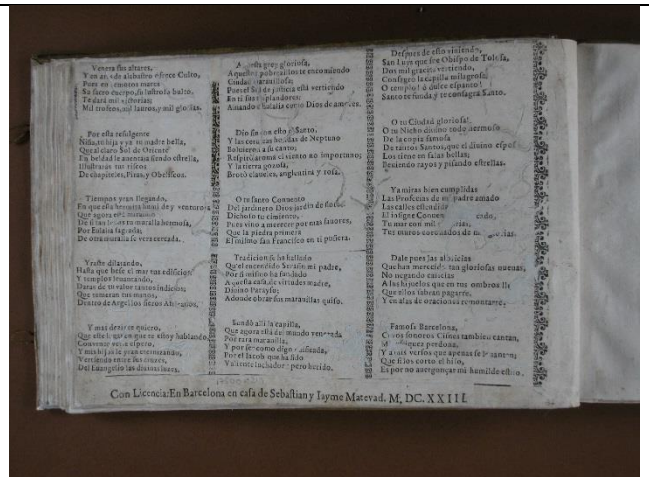 Venera sus altares,
Y en ar de alabastro ofrece Culto,
Pues en remotos mares
Su sacro cuerpo, su lustroso bulto,
Te dará mil victorias;
Mil trofeos, mil lauros, y mil glorias.
Por esta refulgente
Niña, tu hija y ya tu madre bella,
Que al claro Sol de Oriente
En beldad le auentaja siendo estrella,
Illustrarán tus riscos
De chapiteles, Piras, y Obeliscos.
Tiempos yran llegando,
En que esta hermita humilde y venturosa
Que agora esté mirando
De si lexos tu muralla hermosa,
Por Eulalia sagrada;
De otra muralla se vera cercada.
Yraste dilatando,
Hasta que bese el mar tus edificios
Y templos leuantando,
Daràs de tu valor tantos indicios;
Que temeran tus manos,
Dentro de Argel los fieros
Y mas dezirte quiero,
Que este lugar en que te estoy hablando,
Conuento ser a espero,
Y mis hijos le yran
Vertiendo entre sus cruzes,
Del Euangelio las diuinas luzes.
A questa grey gloriosa,
Aquestos pobrezillos te encomiendo
Ciudad marauillosa;
Pues el Sol de justicia està vertiendo
En ti sus esplandores;
Amando como Dios de amores.
Dio fin con esto el Santo,
Y las cerúleas ondas de Neptuno
Boluieron a su canto;
Respiró aura el viento no importuno;
Y la tierra gozosa,
Brotò claueles, anglentina y rosa.
O tu santo Conuento
Del jardinero Dios jardin de flores.
Dichoso tu cimiento,
Pues vino a merecer por mas fauores,
Que la piedra primera
El mismo san Francisco en ti pusiera.
Tradicion se ha hallado
Qu'el encendido Serafin mi padre,
Por si mismo ha fundado
Aquesta casa de virtudes madre,
Diuino Parayso;
Adonde obrar sus marauillas quiso.
Sendo alli la capilla,
Que agora està del mundo venerada
Por rara marauilla,
Y por ser como digo edificada,
Por el Iacob que ha sido
Valiente luchador pero herido.
Despues de esto viniendo,
San Luys que fue Obispo de Tolosa,
Dos mil gracias vertiendo,
Consagró la capilla milagrosa:
O templo! ô dulce espanto!
Santo te funda y te consagra Santo.
O tu Ciudad gloriosa!,
O tu Nicho diuino todo hermoso
De la copia famosa
De tantos Santos, que el diuino esposo
Los tiene en salas bellas;
Beuiendo rayos y pisando estrellas.
Ya miras bien cumplidas
Las Profecias de mi padre amado
Las calles estendidas
El insigne Conuento
Tu mar con mil
Tus muros coronados de
Dale pues las albricias
Que han merecido tan gloriosas nueuas,
No negando caricias
A las hijuelos que en tus ombros lleuas
Que ellos sabran pagarte,
Y en alas de oraciones remontarte.
Famosa Barcelona,
Otros sonoros Cisnes tambien cantan,
perdona,
Y a mis versos que apenas se leuantan;
Que si los corto el hilo,
Es por no auergonçar mi humilde estilo.
Con Licencia: En Barcelona en casa de Sebastian y Iayme Mateuad. M. DC. XXIII.